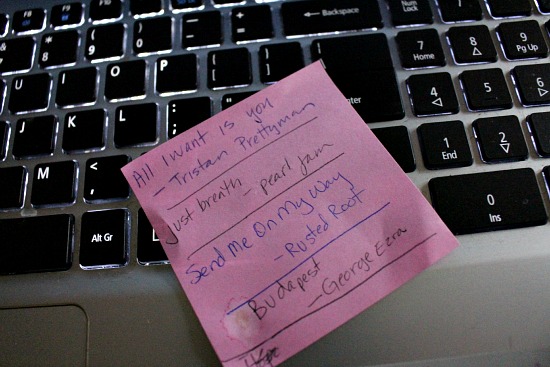 All I want is you
- Tristan Prettyman
Just breath
- pearl jam
Send Me On My Way
- Rusted Root
Budapest
- George Ezra
F8
F9
F10
F11
Backspace
Num Lock
8
*
9
(
0
)
-
=
+
7
Home
8
9
Pg Up
I
O
P
[
{
]
}
Enter
4
5
6
K
L
;
:
1
End
2
M
<
,
0
Ins
Alt Gr